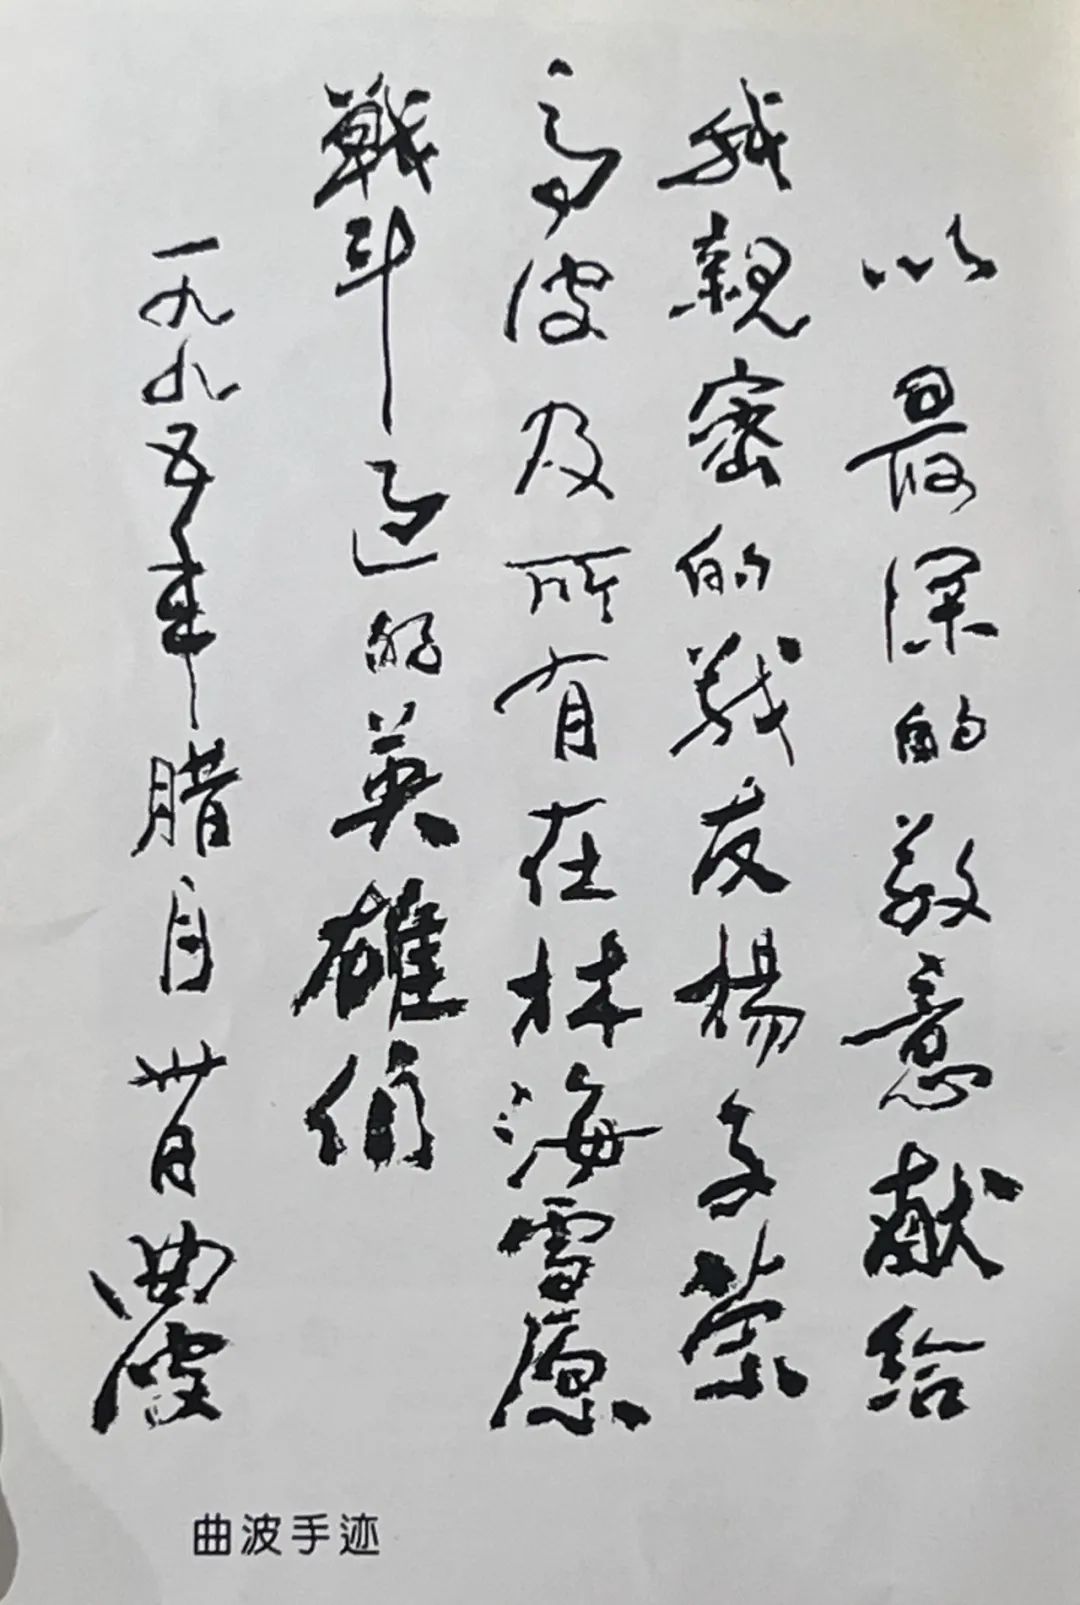 以最深的敬意献给
我親密的战友楊子荣
高波及所有在林海雪原
戰斗过的英雄们
一九九五年腊月卅日曲波
曲波手迹